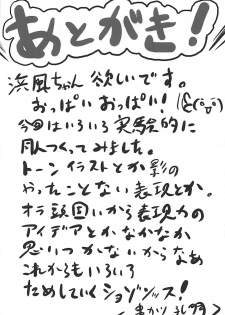 あとがき!
浜風ちゃん 欲しいです。
おっぱい おっぱい!
今回はいろいろ実験的に
月人つくってみました。
トーンイラストとか影の
やったことない表現とか。
オラ頭固いから表現力の
アイデアとかなかなか
思いつかないからなあ
これからもいろいろ
ためしていくショゾンス!